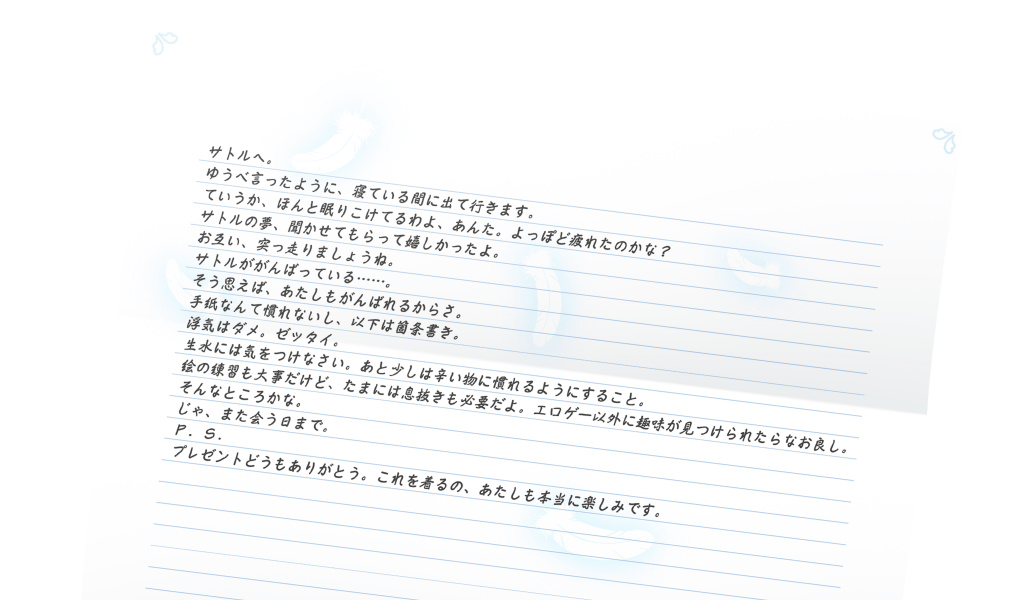 サトルへ。
ゆうべ言ったように、寝ている間に出て行きます。
ていうか、ほんと眠りこけてるわよ、あんた。よっぽど疲れたのかな？
サトルの夢、聞かせてもらって嬉しかったよ。
お互い、突っ走りましょうね。
サトルががんばっている……。
そう思えば、あたしもがんばれるからさ。
手紙なんて慣れないし、以下は箇条書き。
浮気はダメ。ゼッタイ。
生水には気をつけなさい。あと少しは辛い物に慣れるようにすること。
絵の練習も大事だけど、たまには息抜きも必要だよ。エロゲー以外に趣味が見つけられたらなお良し。
そんなところかな。
じゃ、また会う日まで。
Ｐ．Ｓ．
プレゼントどうもありがとう。これを着るの、あたしも本当に楽しみです。